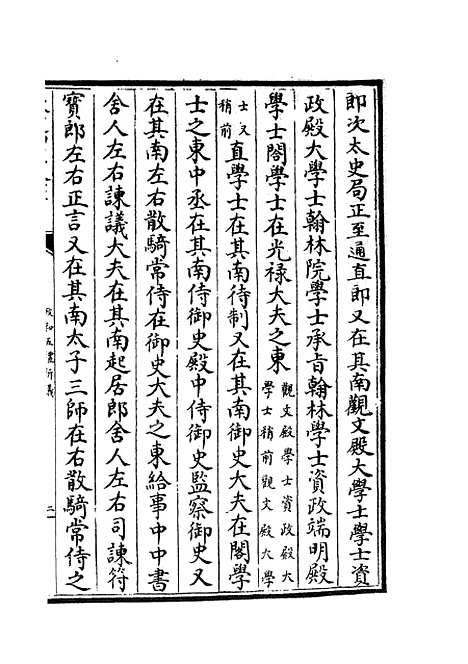 郎次太史局正至通直郎又在其南觀文殿大學士學士資
政殿大學士翰林院學士承旨翰林學士資政端明殿
學士閣學士在光禄大夫之東觀文殿學士資政殿大
學士稍前觀文殿大學
士又
稍前直學士在其南待制又在其南御史大夫在閣學
士之東中丞在其南侍御史殿中侍御史監察御史又
在其南左右散騎常侍在御史大夫之東給事中中書
舍人左右諫議大夫在其南起居郎舍人左右司諫符
寳郎左右正言又在其南太子三師在右散騎常侍之
政和五禮新儀